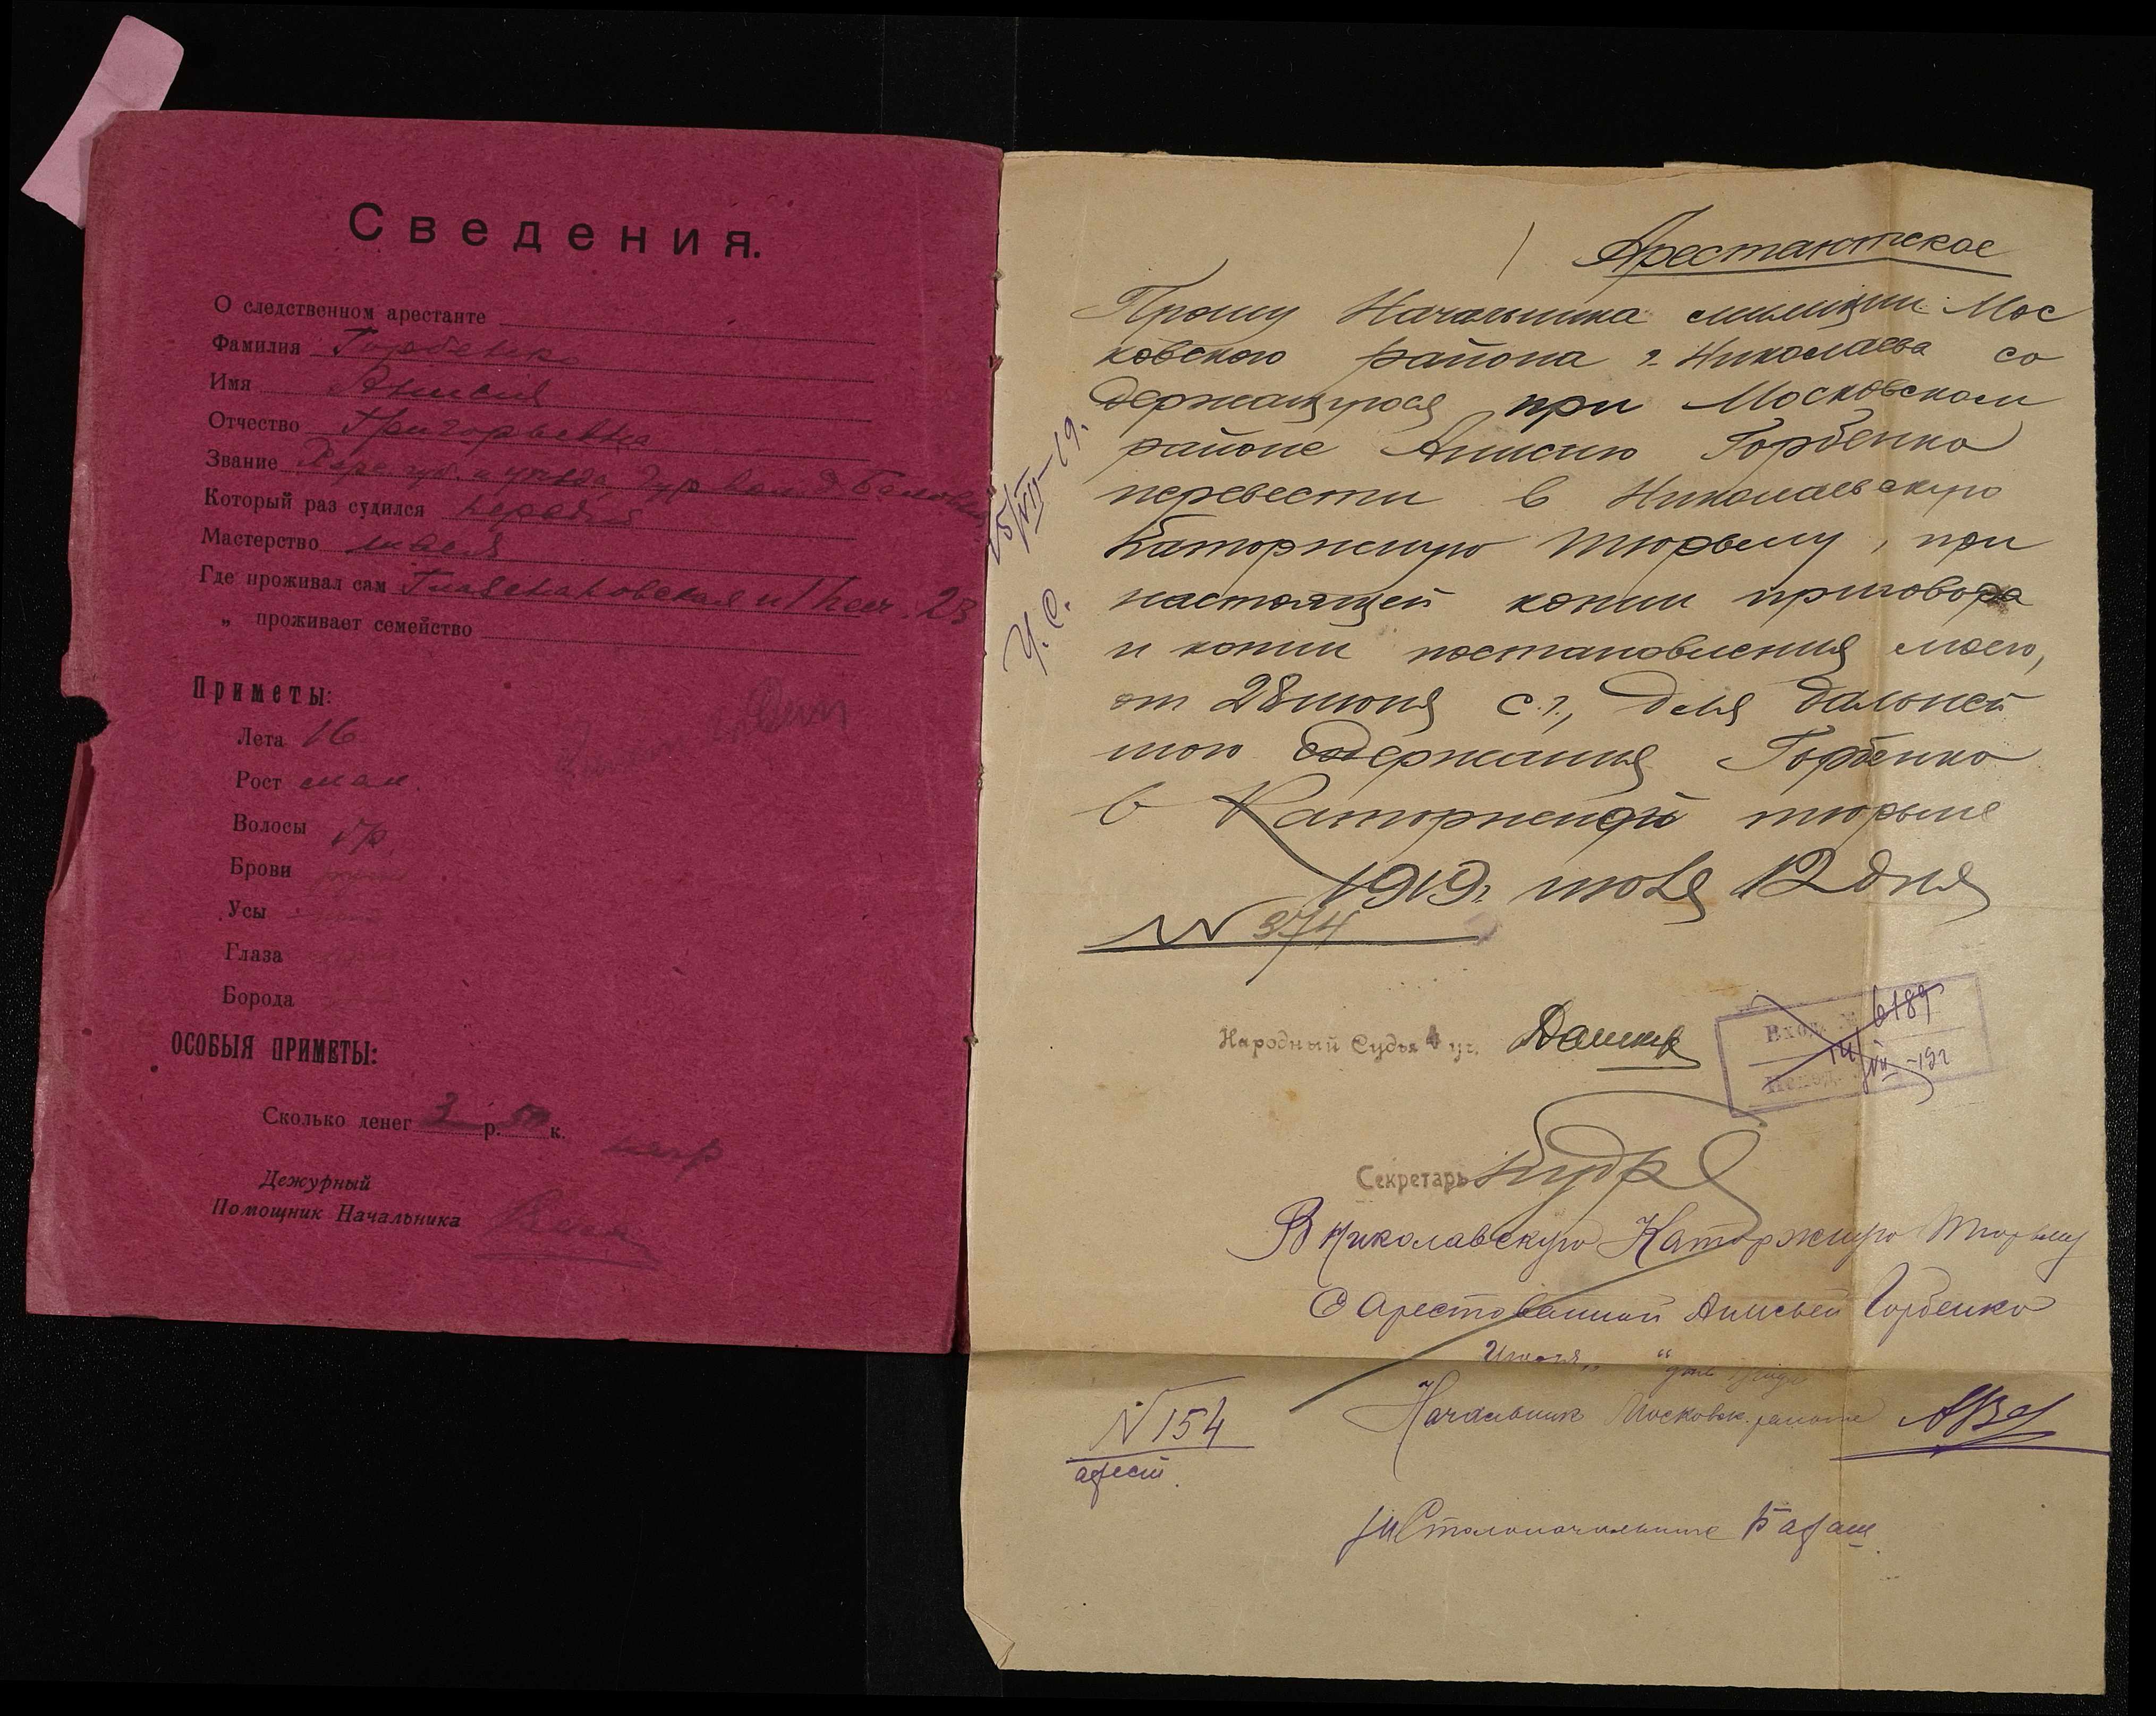 Сведения.
О следственном арестанте
Фамилия Горбенко
Имя Анисия
Отчество Григорьевна
Звание Херс. губ. и уезда,
Который раз судился первый
Мастерство швея
Где проживал сам 23
„ проживает семейство
Приметы:
Лета 16
Рост мал.
Волосы
Брови
Усы
Глаза
Борода
ОСОБЫЯ ПРИМЕТЫ:
Сколько денег 3 р. 50 к.
Дежурный
Помощник Начальника
Арестантское
Прошу Начальника милиции Мос
ковского района г. Николаева со
держащуюся при Московском
районе Анисию Горбенко
перевести в Николаевскую
Каторжную тюрьму, при
настоящей копии приговора
и копии постановления моего,
от 28 июня с.г., для дальней
шего содержания Горбенко
в Каторжной тюрьме
1919 г. июля 12 дня
N 374
15/VII-19.
У. С.
Народный Судья 4 уч.
Вход. № 6189
14/VII-19г
Исход.
Секретарь
В Николавскую Каторжную Тюрьму
С арестованной Анисьей Горбенко
Июля „ “ дня
Начальник Московск. района
N 154
арест.
Столоначальника